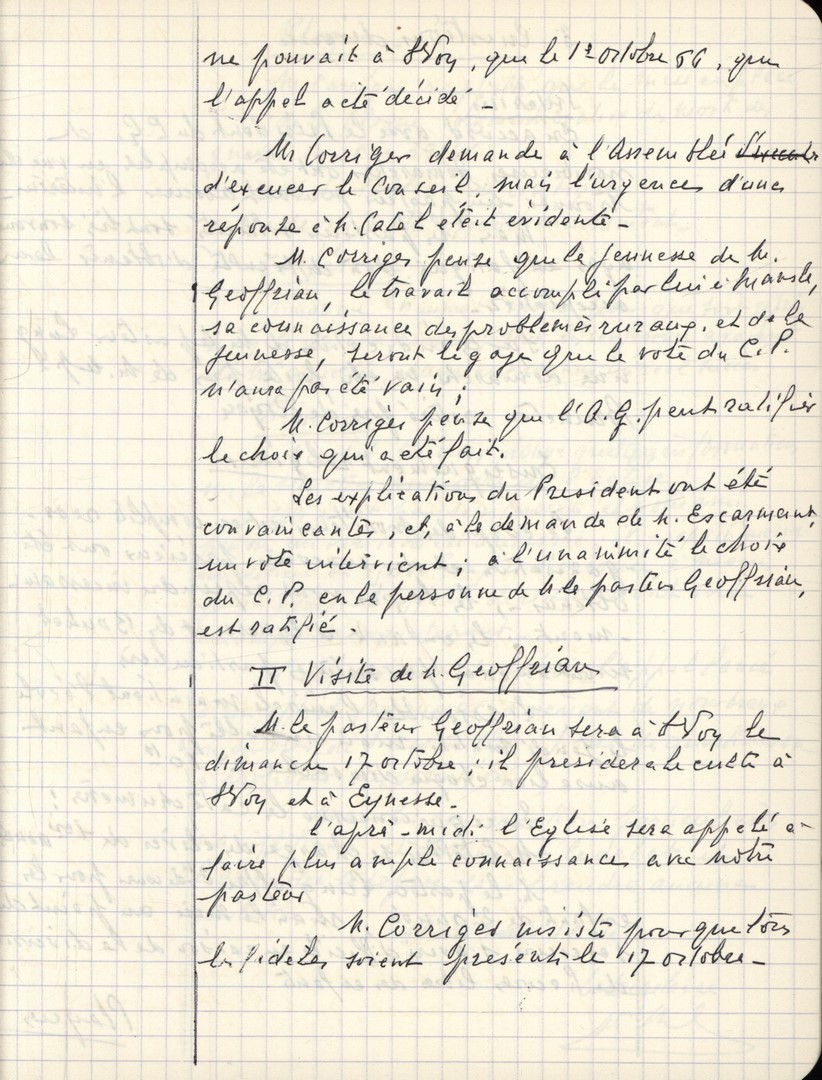 ne pouvait à St Foy, que le 1er octobre 66, que
l'appel a été décidé –
Mr Corriger demande à l'Assemblée
d'excuser le Conseil, mais l'urgence d'une
réponse à M. Catel était évidente –
M. Corriger pense que la jeunesse de M.
Geoffrian, le travail accompli par lui à
sa connaissance des problèmes ruraux, et de la
jeunesse, seront le gage que le vote du C.P.
n'aura pas été vain ;
M. Corriger pense que l'A.G. peut ratifier
le choix qui a été fait.
Les explications du President ont été
convaincantes, et, à la demande de M. Escarment,
un vote intervient ; à l'unanimité le choix
du C.P. en la personne de M. le pasteur Geoffrian,
est ratifié.
II Visite de M. Geoffrian
M. le pasteur Geoffrian sera à St Foy le
dimanche 17 octobre ; il presidera le culte à
St Foy et à Eynesse –
l'après-midi l'Eglise sera appelé à
faire plus ample connaissance avec notre
pasteur
M. Corriger insiste pour que tous
les fidèles soient présents le 17 octobre –